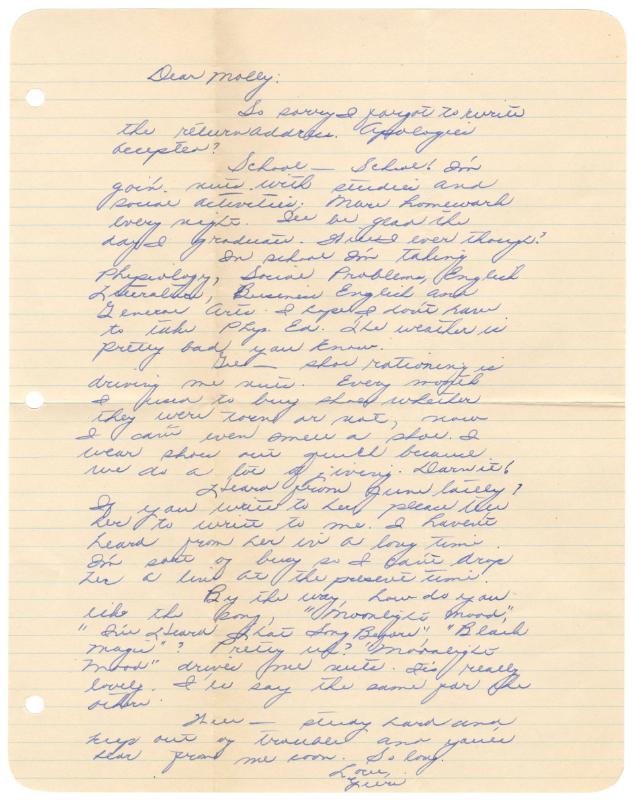 Dear Molly:
So sorry I forgot to write
the return address. Apologies
accepted?
School — School! I'm
goin' nuts with studies and
social activities. More homework
every night. I'll be glad the
day I graduate. If I ever though?
In school I'm taking
Physiology, Social Problems, English
Literature, Business English and
General Arts. I hope I don't have
to take Phys. Ed. The weather is
pretty bad, you know.
Gee — shoe rationing is
driving me nuts. Every month
I used to buy shoes whether
they were torn or not, now
I can't even smell a shoe. I
wear shoes out quick because
we do a lot of jiving. Darn it!
Heard from June lately?
If you write to her, please tell
her to write to me. I haven't
heard from her in a long time.
I'm sort of busy so I can't drop
her a line at the present time.
By the way, how do you
like the song, "Moonlight Mood",
"I've Heard That Song Before", "Black
Magic"? Pretty, uh? "Moonlight
Mood" drives me nuts. It's really
lovely. I'll say the same for the
other.
Well — study hard and
keep out of trouble and you'll
hear from me soon. So long.
Love,